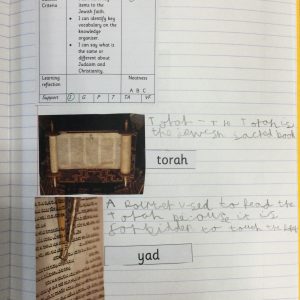 Criteria
items to the
Jewish faith.
I can identify key
vocabulary on the
knowledge
organiser.
I can say what is
the same or
different about
Judaism and
Christianity.
Learning
reflection
Neatness
A B C
Support I G P T TA VF
Torah - TH Torah is
the Jewish sacred book
torah
A Pointer used to read the
Torah it is
forbidden to touch the
yad